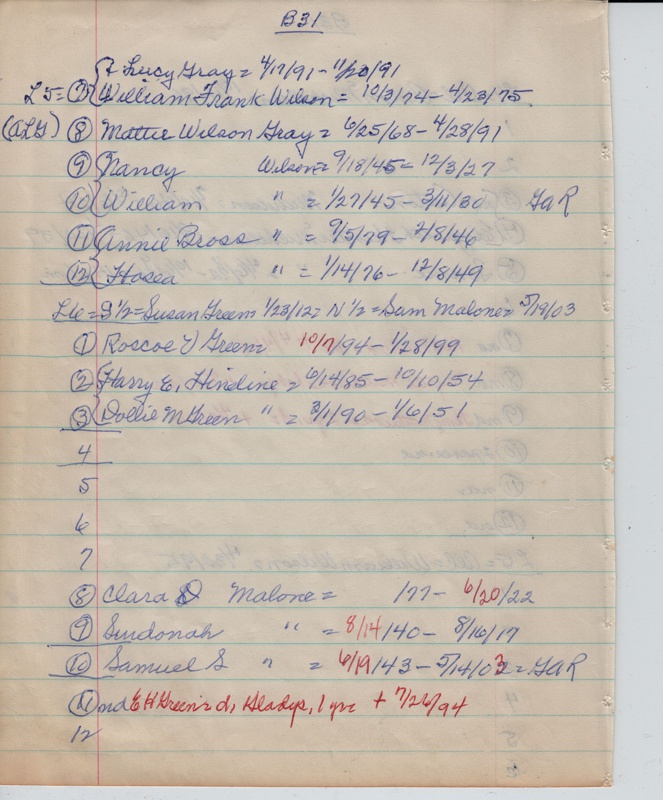 B31
{+ Lucy Gray = 4/17/91 - 11/20/91
L5 = ⑦ {William Frank Wilson = 10/3/74 - 4/23/75.
(ALG) ⑧ Mattie Wilson Gray = 6/25/68 - 4/28/91
⑨ {Nancy Wilson = 9/18/45 = 12/3/27
⑩ {William " = 1/27/45 - 3/11/30 GAR
⑪ {Annie Bross " = 9/5/79 - 2/8/46
⑫ {Hosea " = 1/14/76 - 12/8/49
L6 = S 1/2 = Susan Green = 1/23/12 = N 1/2 = Sam Malone = 5/19/03
① Roscoe V Green = 10/7/94 - 1/28/99
② {Harry E. Hindine = 6/14/85 - 10/10/54
③ {Dollie M Green " = 3/1/90 - 1/6/51
4
5
6
7
⑧ Clara D Malone = /77 - 6/20/22
⑨ Surdonah " = 8/14/40 - 8/16/17
⑩ Samuel S " = 6/19/43 - 5/14/03 = GAR
⑪ nd E H Green's d, Gladys, 1 yr + 7/26/94
12